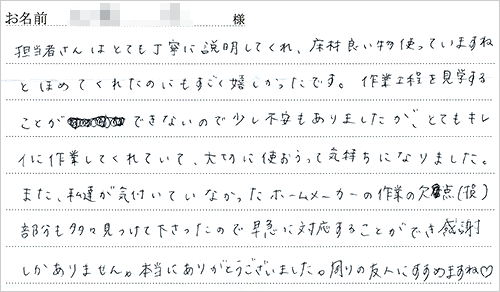 お名前 様
担当者さんはとても丁寧に説明してくれ、床材良い物使っていますね
とほめてくれたのにもすごく嬉しかったです。作業工程を見学する
ことができないので少し不安もありましたが、とてもキレ
イに作業してくれていて、大切に使おうって気持ちになりました。
また、私達が気付いていなかったホームメーカーの作業の欠点(損)
部分も多々見つけて下さったので早急に対応することができ感謝
しかありません。本当にありがとうございました。周りの友人にすすめますね♡